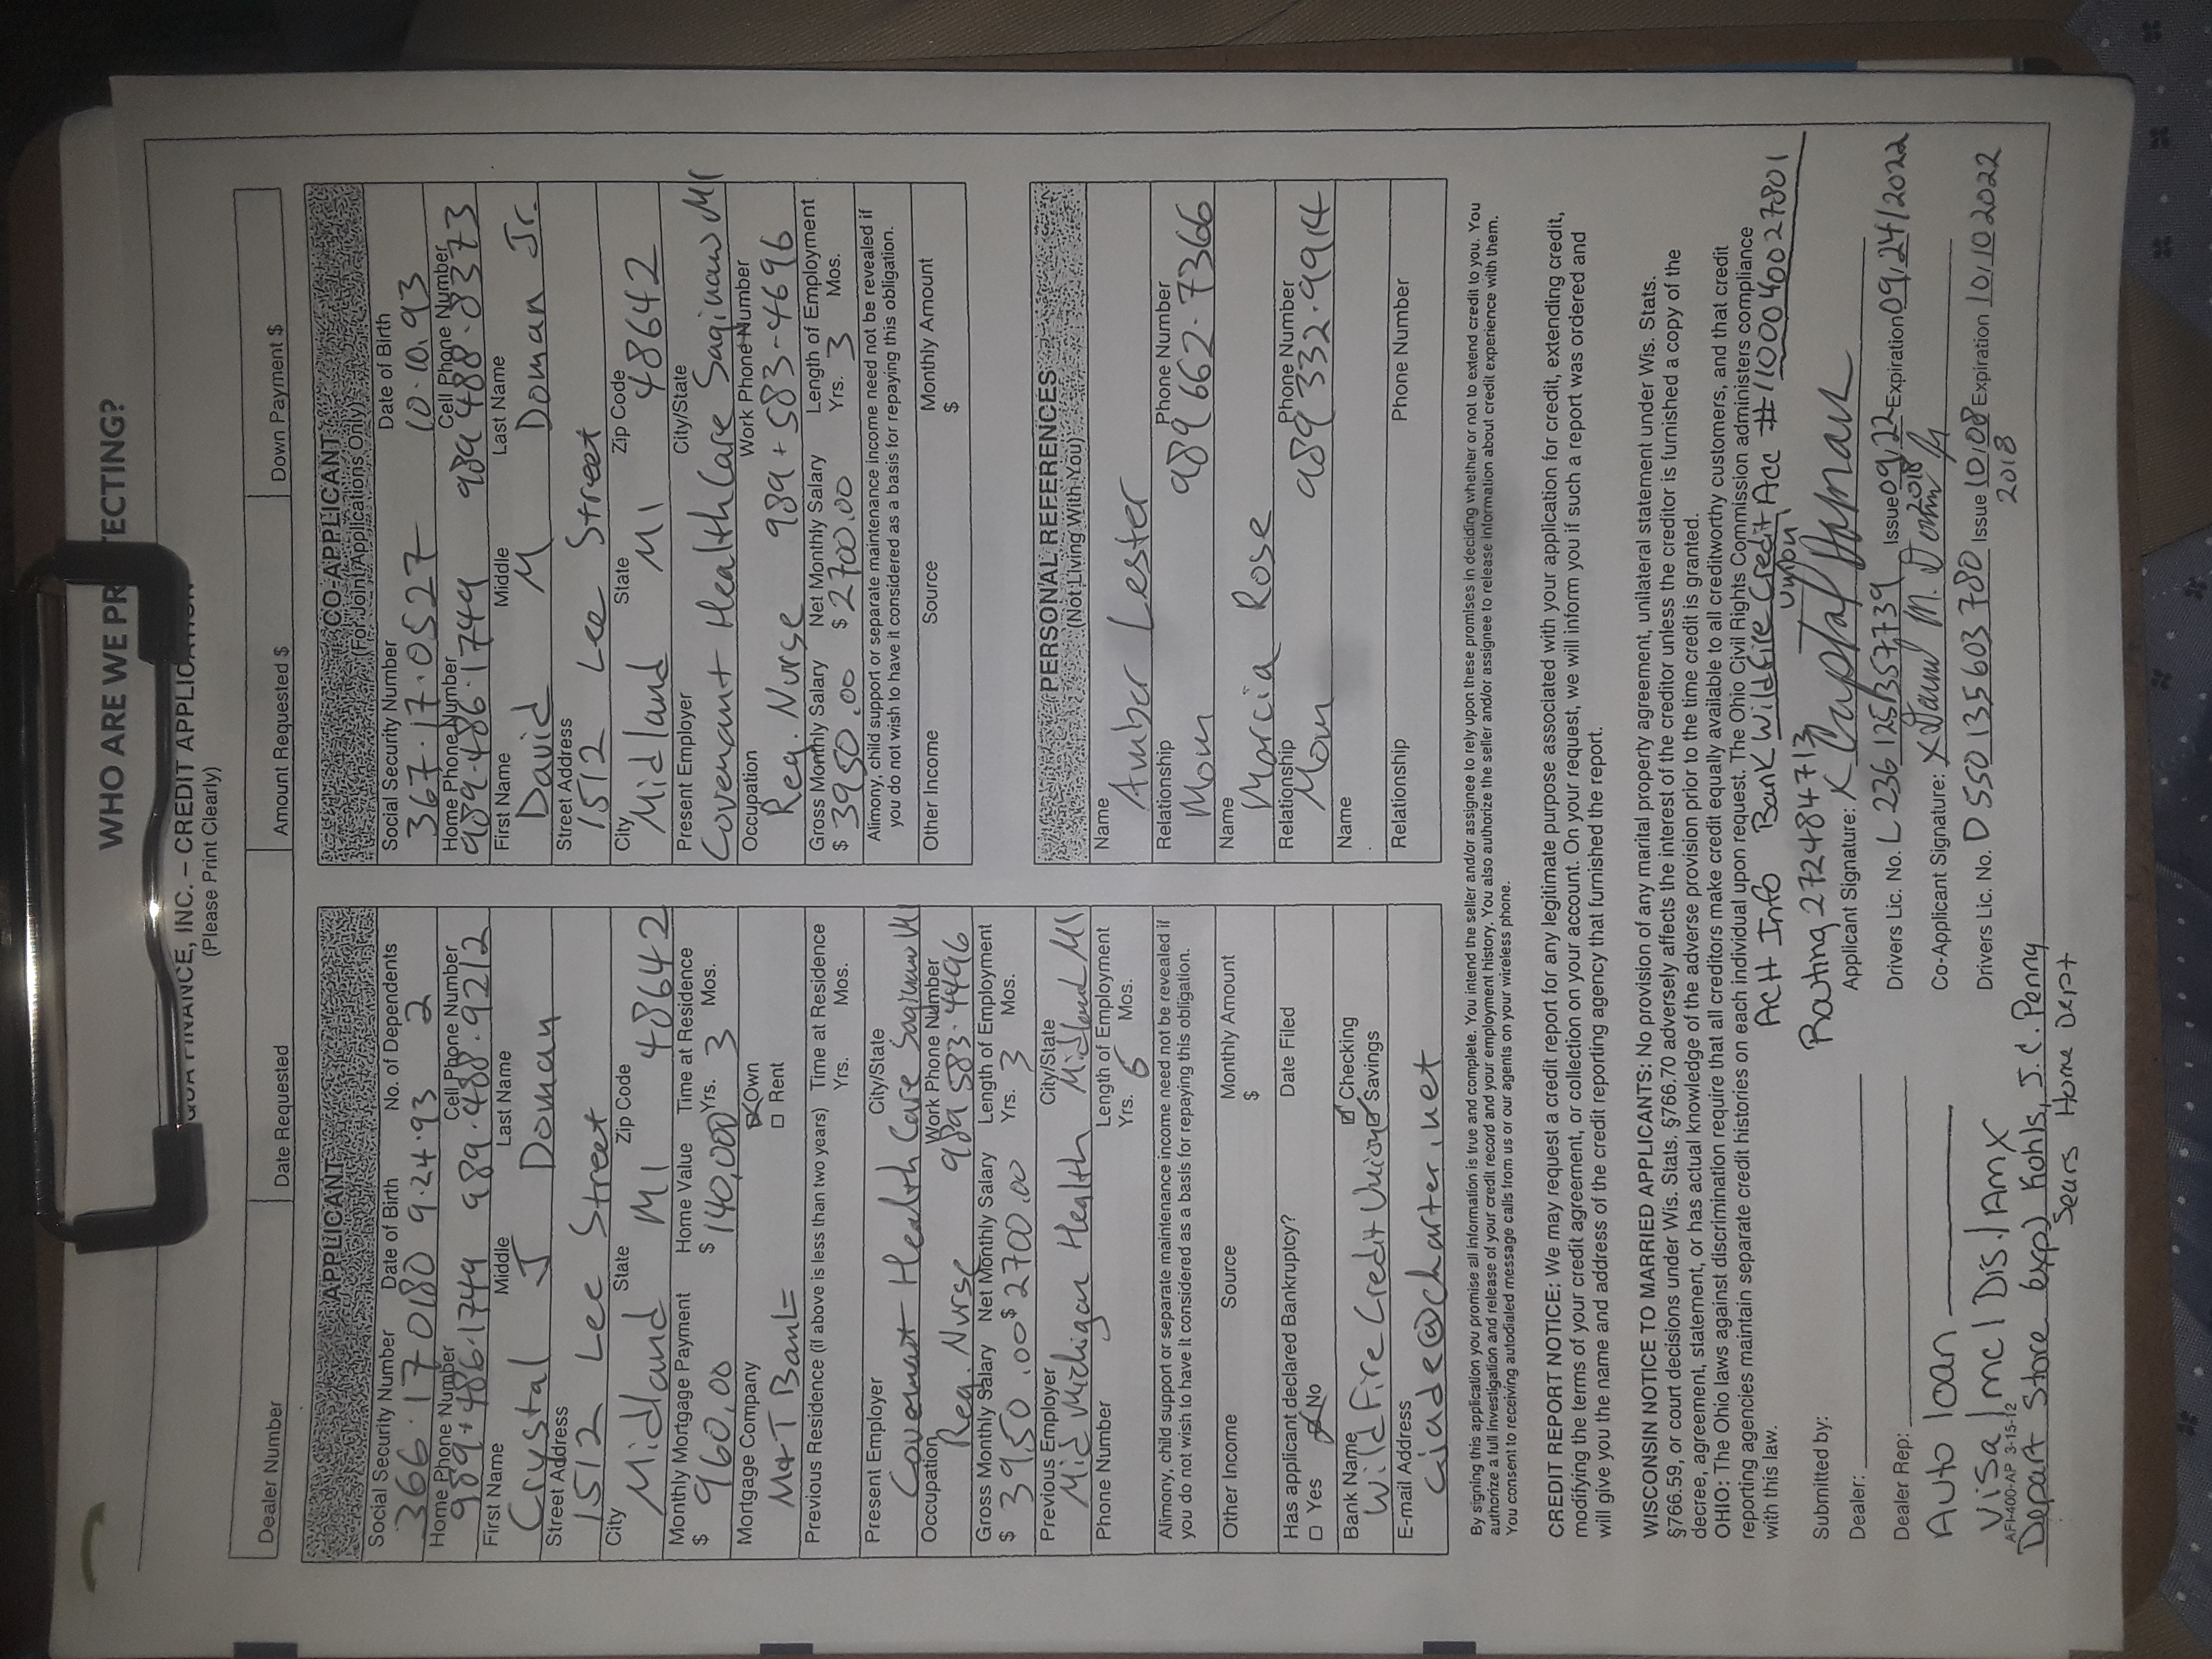 WHO ARE WE PR TECTING?
FINANCE, INC. – CREDIT APPLICATION
(Please Print Clearly)
Dealer Number Date Requested Amount Requested $ Down Payment $
APPLICANT
Social Security Number Date of Birth No. of Dependents
366·17 0180 9·24·93 2
Home Phone Number Cell Phone Number
989+486·1749 989·488·9212
First Name Middle Last Name
Crystal J Doman
Street Address
1512 Lee Street
City State Zip Code
Midland MI 48642
Monthly Mortgage Payment Home Value Time at Residence
$ 960.00 $ 140,000 Yrs. 3 Mos.
Mortgage Company Own
M+T Bank Rent
Previous Residence (if above is less than two years) Time at Residence
Yrs. Mos.
Present Employer City/State
Covenant Health Care Saginaw MI
Occupation Work Phone Number
Reg. Nurse 989 583·4496
Gross Monthly Salary Net Monthly Salary Length of Employment
$ 3950.00 $ 2700.00 Yrs. 3 Mos.
Previous Employer City/State
Mid Michigan Health Midland MI
Phone Number Length of Employment
Yrs. Mos.
Alimony, child support or separate maintenance income need not be revealed if
you do not wish to have it considered as a basis for repaying this obligation.
Other Income Source Monthly Amount
$
Has applicant declared Bankruptcy? Date Filed
Yes No
Bank Name Checking
Wildfire Credit Union Savings
E-mail Address
cjade@charter.net
CO-APPLICANT
(For Joint Applications Only)
Social Security Number Date of Birth
367·17·0527 10·10·93
Home Phone Number Cell Phone Number
989-486·1749 989 488·8373
First Name Middle Last Name
David M Doman Jr.
Street Address
1512 Lee Street
City State Zip Code
Midland MI 48642
Present Employer City/State
Covenant HealthCare Saginaw MI
Occupation Work Phone Number
Reg. Nurse 989+583-4696
Gross Monthly Salary Net Monthly Salary Length of Employment
$ 3950.00 $ 2700.00 Yrs. 3 Mos.
Alimony, child support or separate maintenance income need not be revealed if
you do not wish to have it considered as a basis for repaying this obligation.
Other Income Source Monthly Amount
$
PERSONAL REFERENCES
(Not Living With You)
Name
Amber Lester
Relationship Phone Number
Mom 989 662·7366
Name
Marcia Rose
Relationship Phone Number
Mom 989 332·9914
Name
Relationship Phone Number
By signing this application you promise all information is true and complete. You intend the seller and/or assignee to rely upon these promises in deciding whether or not to extend credit to you. You
authorize a full investigation and release of your credit record and your employment history. You also authorize the seller and/or assignee to release information about credit experience with them.
You consent to receiving autodialed message calls from us or our agents on your wireless phone.
CREDIT REPORT NOTICE: We may request a credit report for any legitimate purpose associated with your application for credit, extending credit,
modifying the terms of your credit agreement, or collection on your account. On your request, we will inform you if such a report was ordered and
will give you the name and address of the credit reporting agency that furnished the report.
WISCONSIN NOTICE TO MARRIED APPLICANTS: No provision of any marital property agreement, unilateral statement under Wis. Stats.
§766.59, or court decisions under Wis. Stats. §766.70 adversely affects the interest of the creditor unless the creditor is furnished a copy of the
decree, agreement, statement, or has actual knowledge of the adverse provision prior to the time credit is granted.
OHIO: The Ohio laws against discrimination require that all creditors make credit equally available to all creditworthy customers, and that credit
reporting agencies maintain separate credit histories on each individual upon request. The Ohio Civil Rights Commission administers compliance
with this law.
ACH Info Bank Wildfire Credit Union Acc #110040027801
Routing 272484713
Submitted by:
Applicant Signature: X
Dealer:
Drivers Lic. No. L 236 125135 7739 Issue 09,22 2018 Expiration 09,24,2022
Dealer Rep:
Co-Applicant Signature: X
Drivers Lic. No. D 550 135 603 780 Issue 10,08 2018 Expiration 10,10 2022
Auto loan
Visa/mc/Dis./AmX
AFI-400-AP 3-15-12
Depart Store (exp) Kohls, J.C. Penny
Sears Home Dept